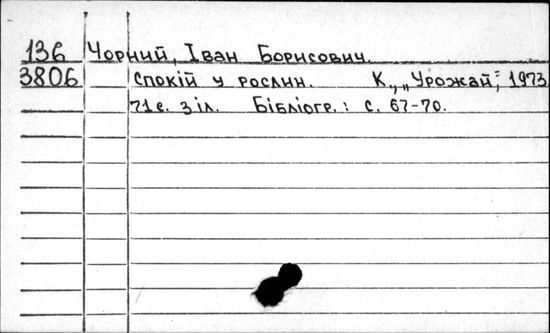 136 Чорний, Іван Борисович.
3806 Спокій у рослин. К., „Урожай", 1973
71с. з іл. Бібліогр.: с. 67-70.